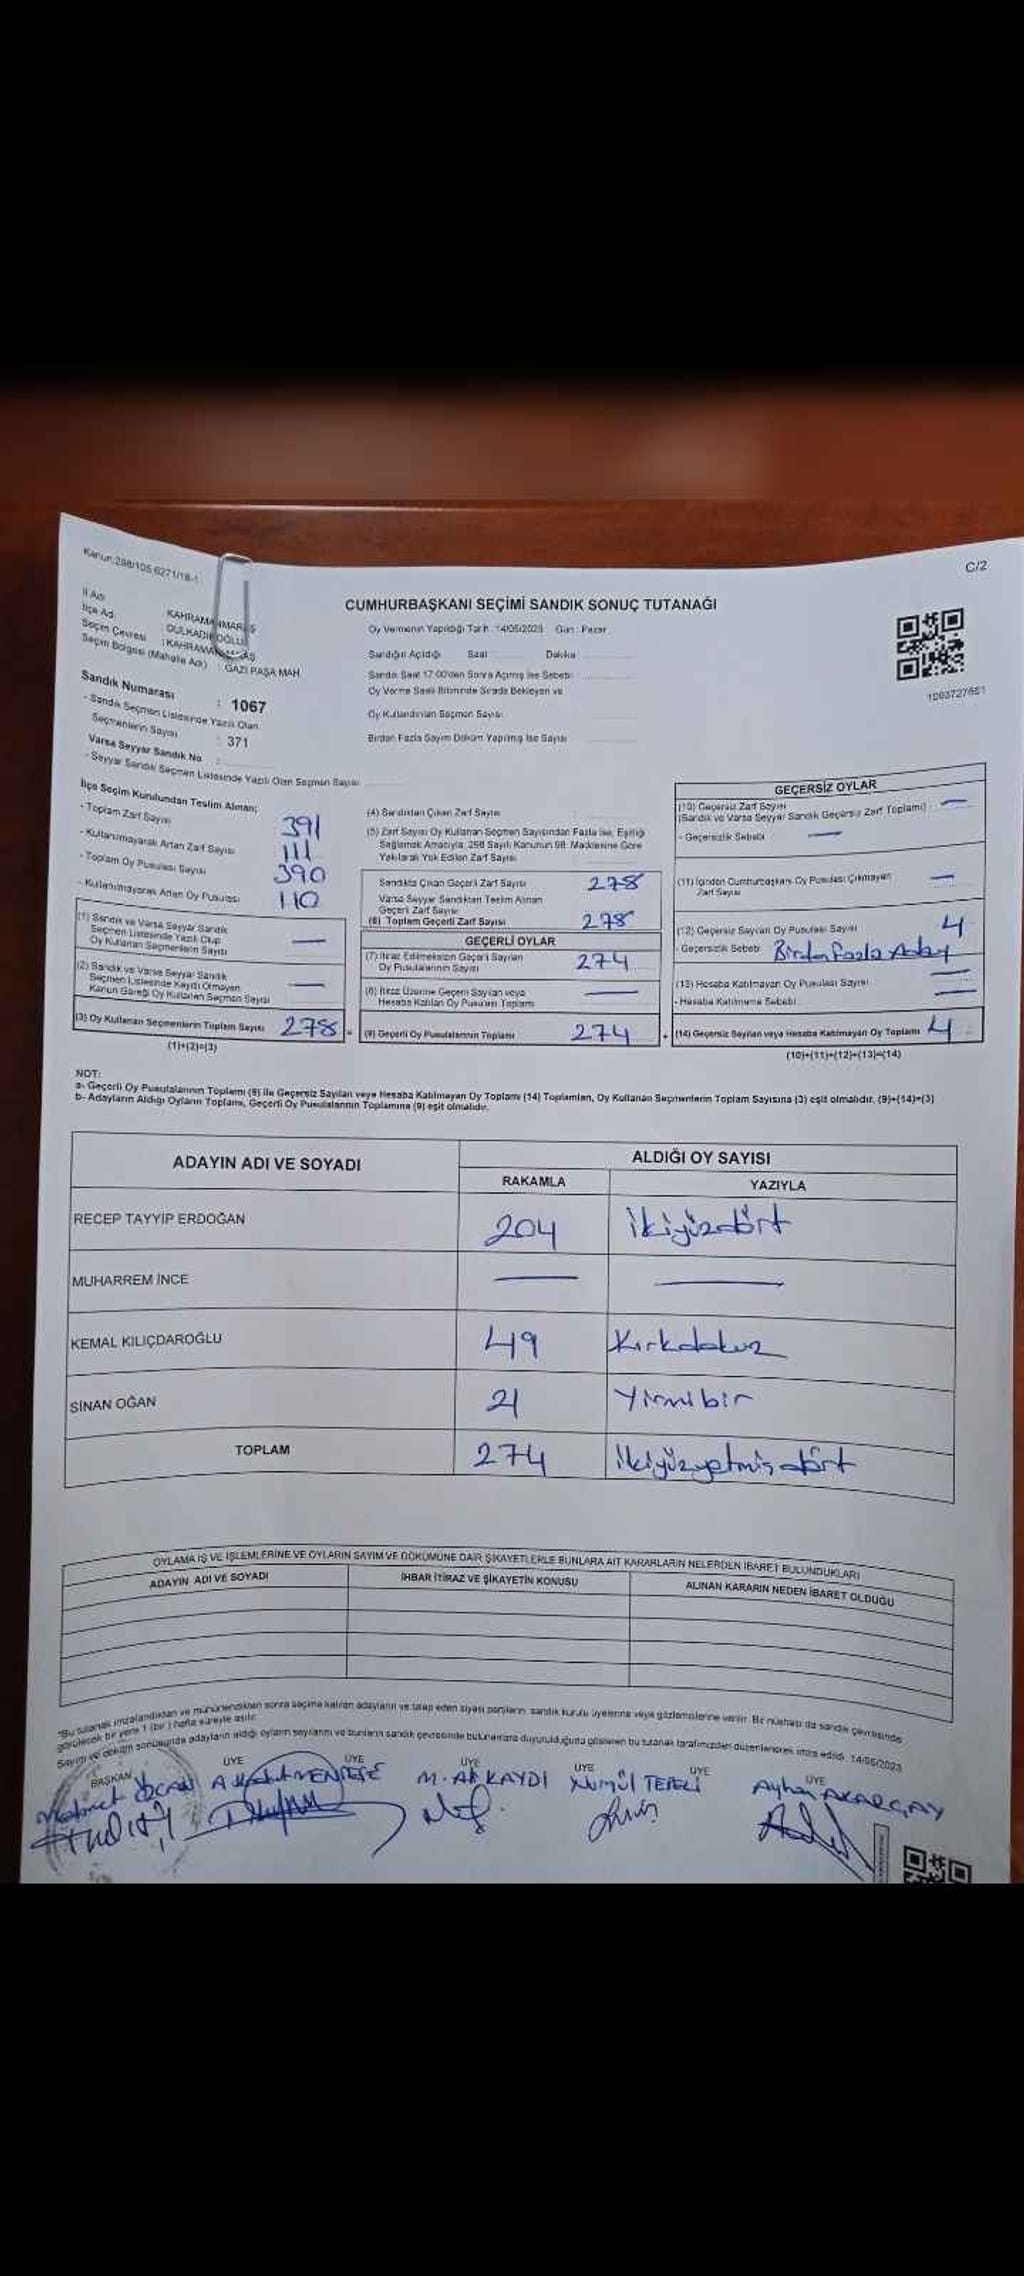 Kanun:298/105 6271/18-1
C/2
CUMHURBAŞKANI SEÇİMİ SANDIK SONUÇ TUTANAĞI
İl Adı
İlçe Adı : DULKADİROĞLU
KAHRAMANMARAŞ
Seçim Çevresi : KAHRAMANMARAŞ
Seçim Bölgesi (Mahalle Adı) : GAZİ PAŞA MAH
Sandık Numarası : 1067
- Sandık Seçmen Listesinde Yazılı Olan
Seçmenlerin Sayısı : 371
Varsa Seyyar Sandık No :
- Seyyar Sandık Seçmen Listesinde Yazılı Olan Seçmen Sayısı
Oy Vermenin Yapıldığı Tarih : 14/05/2023 Gün : Pazar
Sandığın Açıldığı Saat Dakika
Sandık Saat 17:00'den Sonra Açılmış İse Sebebi
Oy Verme Saati Bitiminde Sırada Bekleyen ve
Oy Kullandırılan Seçmen Sayısı
Birden Fazla Sayım Döküm Yapılmış İse Sayısı
1093727661
İlçe Seçim Kurulundan Teslim Alınan;
- Toplam Zarf Sayısı 391
- Kullanılmayarak Artan Zarf Sayısı 111
- Toplam Oy Pusulası Sayısı 390
- Kullanılmayarak Artan Oy Pusulası 110
(1) Sandık ve Varsa Seyyar Sandık
Seçmen Listesinde Yazılı Olup
Oy Kullanan Seçmenlerin Sayısı —
(2) Sandık ve Varsa Seyyar Sandık
Seçmen Listesinde Kaydı Olmayan
Kanun Gereği Oy Kullanan Seçmen Sayısı —
(3) Oy Kullanan Seçmenlerin Toplam Sayısı 278 =
(1)+(2)=(3)
(4) Sandıktan Çıkan Zarf Sayısı
(5) Zarf Sayısı Oy Kullanan Seçmen Sayısından Fazla İse, Eşitliği
Sağlamak Amacıyla, 298 Sayılı Kanunun 98. Maddesine Göre
Yakılarak Yok Edilen Zarf Sayısı
Sandıkta Çıkan Geçerli Zarf Sayısı 278
Varsa Seyyar Sandıktan Teslim Alınan
Geçerli Zarf Sayısı
(6) Toplam Geçerli Zarf Sayısı 278
GEÇERLİ OYLAR
(7) İtiraz Edilmeksizin Geçerli Sayılan
Oy Pusulalarının Sayısı 274
(8) İtiraz Üzerine Geçerli Sayılan veya
Hesaba Katılan Oy Pusulası Toplamı —
(9) Geçerli Oy Pusulalarının Toplamı 274 +
GEÇERSİZ OYLAR
(10) Geçersiz Zarf Sayısı
(Sandık ve Varsa Seyyar Sandık Geçersiz Zarf Toplamı) —
- Geçersizlik Sebebi —
(11) İçinden Cumhurbaşkanı Oy Pusulası Çıkmayan
Zarf Sayısı —
(12) Geçersiz Sayılan Oy Pusulası Sayısı 4
- Geçersizlik Sebebi Birden Fazla Aday
(13) Hesaba Katılmayan Oy Pusulası Sayısı —
- Hesaba Katılmama Sebebi —
(14) Geçersiz Sayılan veya Hesaba Katılmayan Oy Toplamı 4
(10)+(11)+(12)+(13)=(14)
NOT:
a- Geçerli Oy Pusulalarının Toplamı (9) ile Geçersiz Sayılan veya Hesaba Katılmayan Oy Toplamı (14) Toplamları, Oy Kullanan Seçmenlerin Toplam Sayısına (3) eşit olmalıdır. (9)+(14)=(3)
b- Adayların Aldığı Oyların Toplamı, Geçerli Oy Pusulalarının Toplamına (9) eşit olmalıdır.
ADAYIN ADI VE SOYADI ALDIĞI OY SAYISI
RAKAMLA YAZIYLA
RECEP TAYYİP ERDOĞAN 204 ikiyüzdört
MUHARREM İNCE — —
KEMAL KILIÇDAROĞLU 49 Kırkdokuz
SİNAN OĞAN 21 Yirmibir
TOPLAM 274 ikiyüzyetmişdört
OYLAMA İŞ VE İŞLEMLERİNE VE OYLARIN SAYIM VE DÖKÜMÜNE DAİR ŞİKAYETLERLE BUNLARA AİT KARARLARIN NELERDEN İBARET BULUNDUKLARI
ADAYIN ADI VE SOYADI İHBAR İTİRAZ VE ŞİKAYETİN KONUSU ALINAN KARARIN NEDEN İBARET OLDUĞU
"Bu tutanak imzalandıktan ve mühürlendikten sonra seçime katılan adayların ve talep eden siyasi partilerin, sandık kurulu üyelerine veya gözlemcilerine verilir. Bir nüshası da sandık çevresinde
görülecek bir yere 1 (bir) hafta süreyle asılır.
Sayım ve döküm sonucunda adayların aldığı oyların sayılarını ve bunların sandık çevresinde bulunanlara duyurulduğunu gösteren bu tutanak tarafımızdan düzenlenerek imza edildi. 14/05/2023
BAŞKAN ÜYE ÜYE ÜYE ÜYE ÜYE ÜYE
Mehmet ÖZCAN M. AKKAYDI Ayhan AKARÇAY